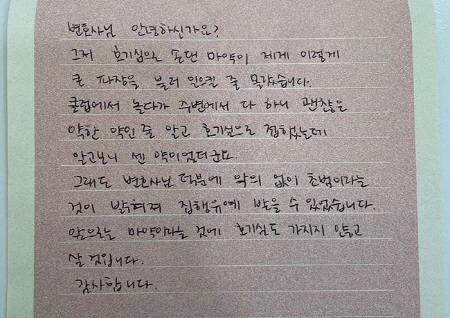 변호사님 안녕하신가요?
그저 호기심의 손댄 마약이 제게 이렇게
큰 파장을 불러 일으킬 줄 몰랐습니다.
클럽에서 놀다가 주변에서 다 하니 괜찮은
약한 약인 줄 알고 호기심으로 접했는데
알고보니 센 약이었더군요.
그래도 변호사님 덕분에 악의 없이 초범이라는
것이 밝혀져 집행유예 받을 수 있었습니다.
앞으로는 마약이라는 것에 호기심도 가지지 않고
살 것입니다.
감사합니다.